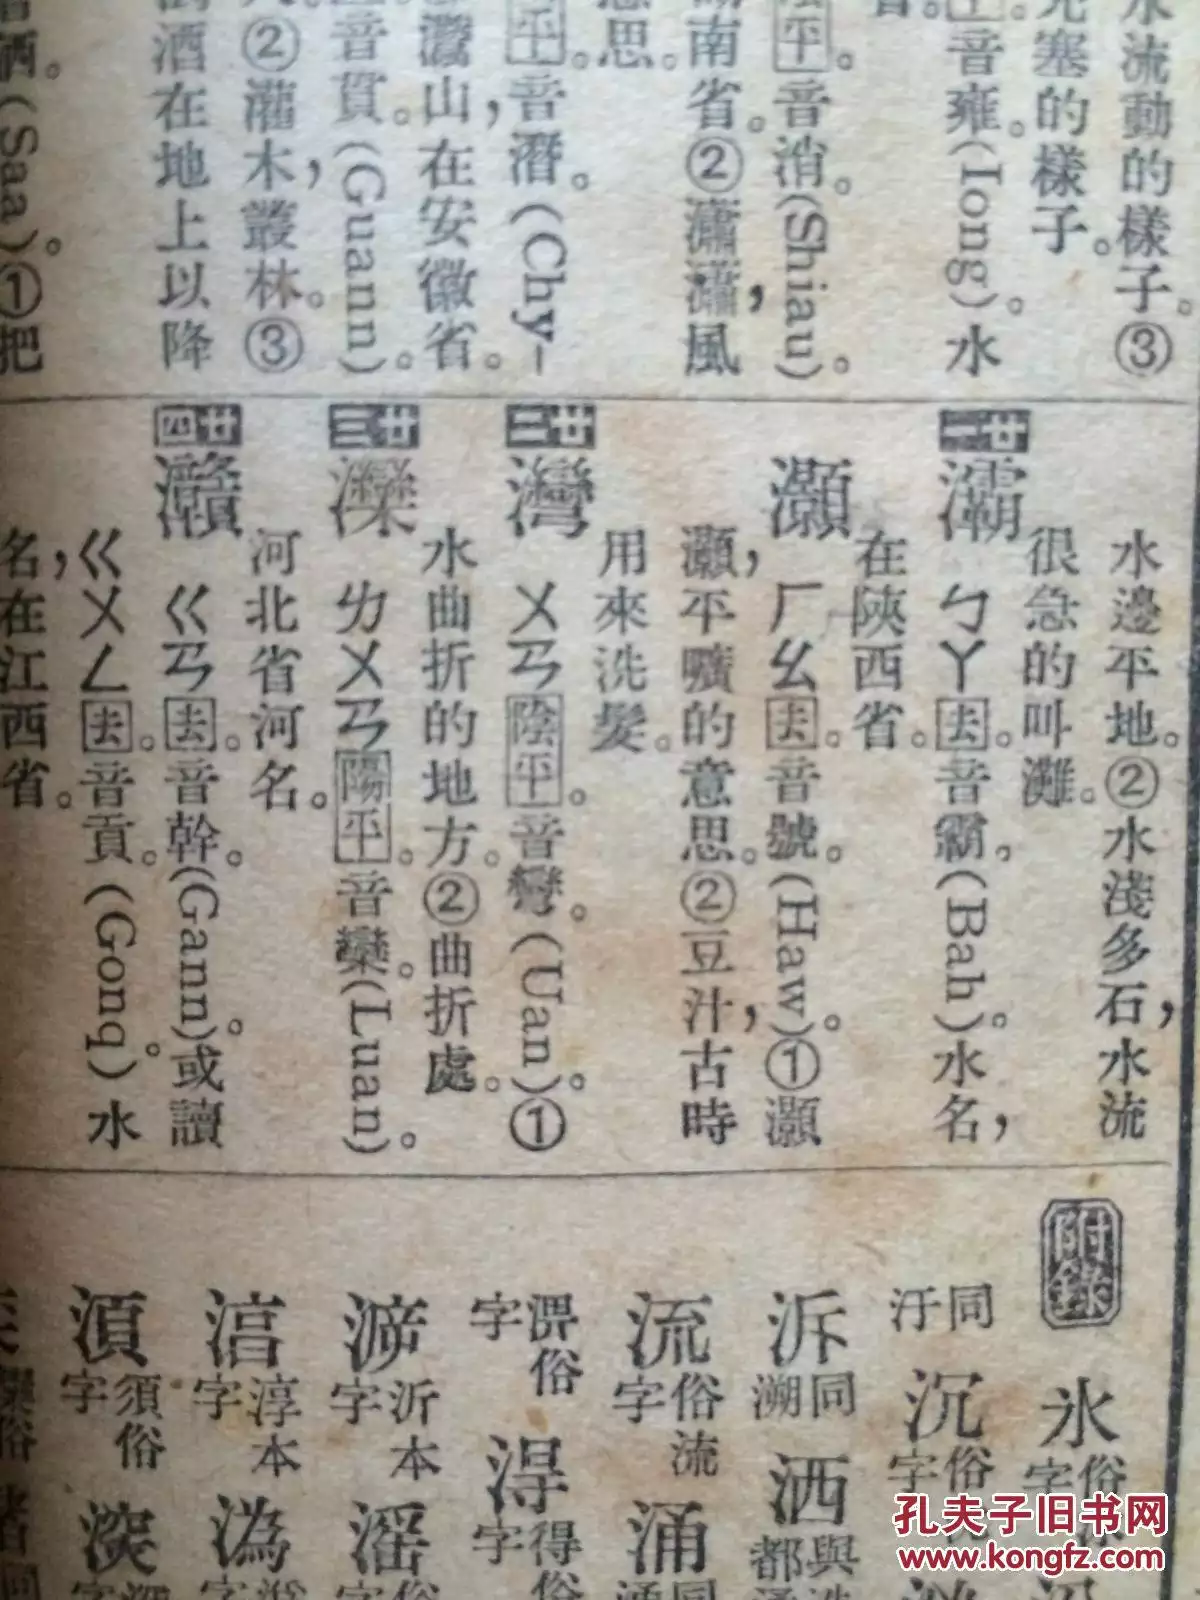 水流動的樣子。③
充塞的樣子。
音雍。(Iong)。水
平。音消。(Shiau)。
南省。②瀟瀟，風
意思。
平。音潛。(Chy-
灊山，在安徽省。
音貫。(Guann)。
②灌木，叢林。③
酒在地上以降
洒。(Saa)。①把
水邊平地。②水淺多石，水流
很急的叫灘。
廿一
灞 ㄅㄚ去。音霸。(Bah)。水名，
在陝西省。
灝 ㄏㄠ去。音號。(Haw)。①灝
灝，平曠的意思。②豆汁，古時
用來洗髮。
廿二
灣 ㄨㄢ陰平。音彎。(Uan)。①
水曲折的地方。②曲折處。
廿三
灤 ㄌㄨㄢ陽平。音欒。(Luan)。
河北省河名。
廿四
灨 ㄍㄢ去。音幹。(Gann)。或讀
ㄍㄨㄥ去。音貢。(Gonq)。水
名，在江西省。
附錄
氷 俗字
同汙
沉 俗字
泝 同溯
洒 與都
流 俗流字
涌 同
俗字
淂 得俗字
沂本字
滛 俗字
淳本字
溈
湏 須俗字
孔夫子旧书网
www.kongfz.com